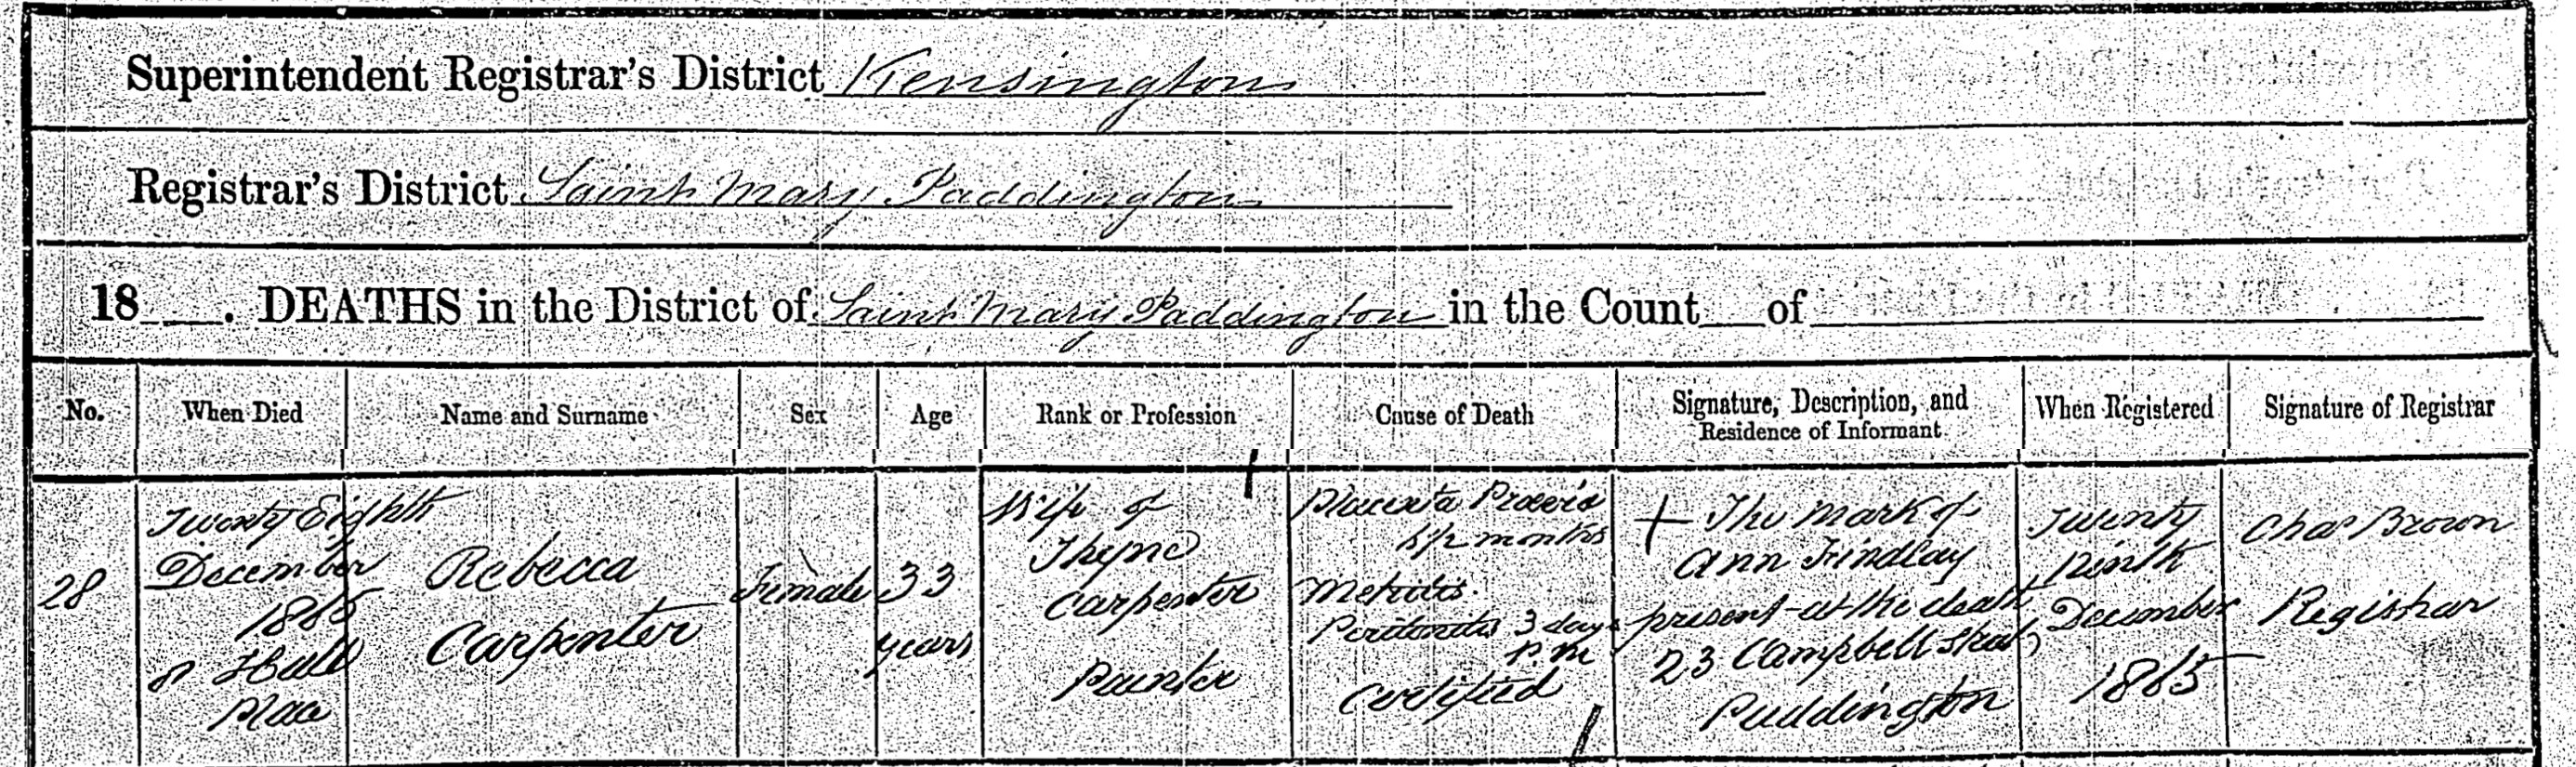 Superintendent Registrar's District Kensington
Registrar's District Saint Mary Paddington
18__. DEATHS in the District of Saint Mary Paddington in the Count__ of
No.
When Died
Name and Surname
Sex
Age
Rank or Profession
Cause of Death
Signature, Description, and
Residence of Informant
When Registered
Signature of Registrar
28
Twenty Eighth
December
1865
8 Hall
Place
Rebecca
Carpenter
Female
33
years
Wife of
Thyne
Carpenter
Painter
Placenta Prævia
months
Metritis
Peritonitis 3 days
P.M.
Certified
+ The mark of
Ann Findlay
present at the death
23 Campbell Street
Paddington
Twenty
Ninth
December
1865
Chas Brown
Registrar